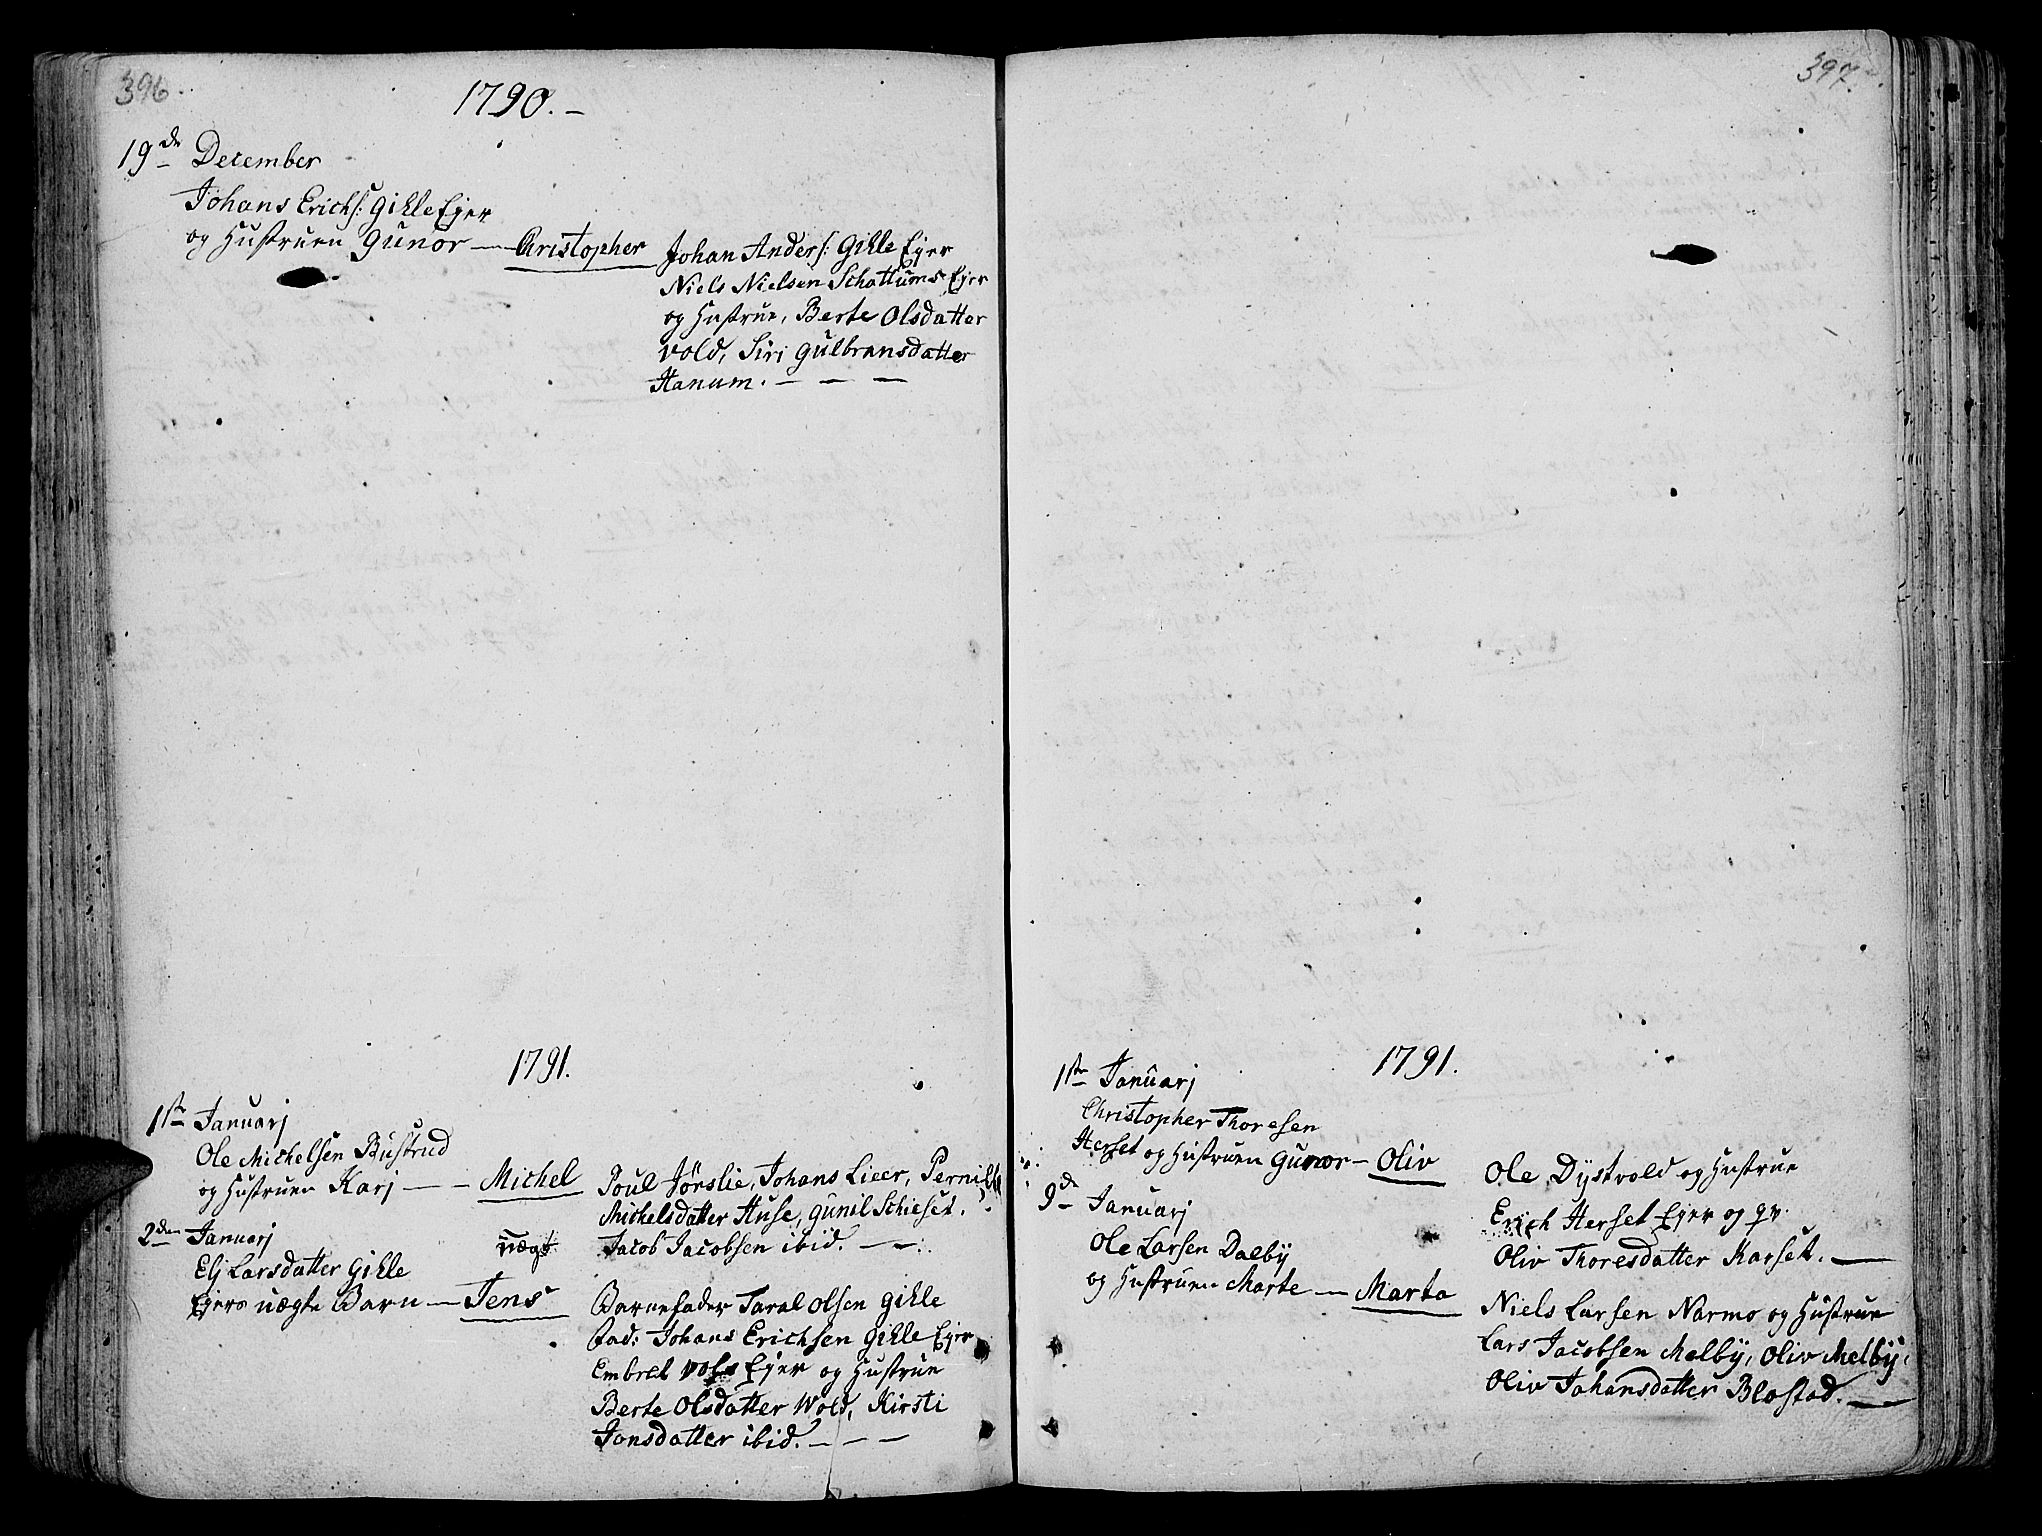 396.
1790.-
19de December
Johans Erichs: Gihle Ejer
og Hustruen Gunor — Christopher
Johan Anders: Gihle Ejer
Niels Nielsen Schattums Ejer
og Hustrue, Berte Olsdatter
vold, Siri Gulbransdatter
Hanum. - - -
1791.
1ste Januarj
Ole Michelsen Bustrud
og Hustruen Karj — - Michel
Poul Jørslie, Johans Lieer, Pernille
Michelsdatter Huse, Gunil Schieset.
Jacob Jacobsen ibid. - -
2den Januarj
uægt
Elj Larsdatter Gihle
Ejers uægte Barn — Jens
Barnefader Taral Olsen Gihle
Fad: Johans Erichsen Gihle Ejer
Embret Ejer og Hustrue
Berte Olsdatter Wold, Kirsti
Jonsdatter ibid. - - -
397.
1791.
1ste Januarj
Christopher Thoresen
Herset og Hustruen Gunor — Oliv
Ole Dystvold og Hustrue
Erich Herset Ejer og qv.
Oliv Thoresdatter Karset. —
9de Januarj
Ole Larsen Dalby
og Hustruen Marte — Marta
Niels Larsen Narmo og Hustrue
Lars Jacobsen Melby, Oliv Melby,
Oliv Johansdatter Blostad. —